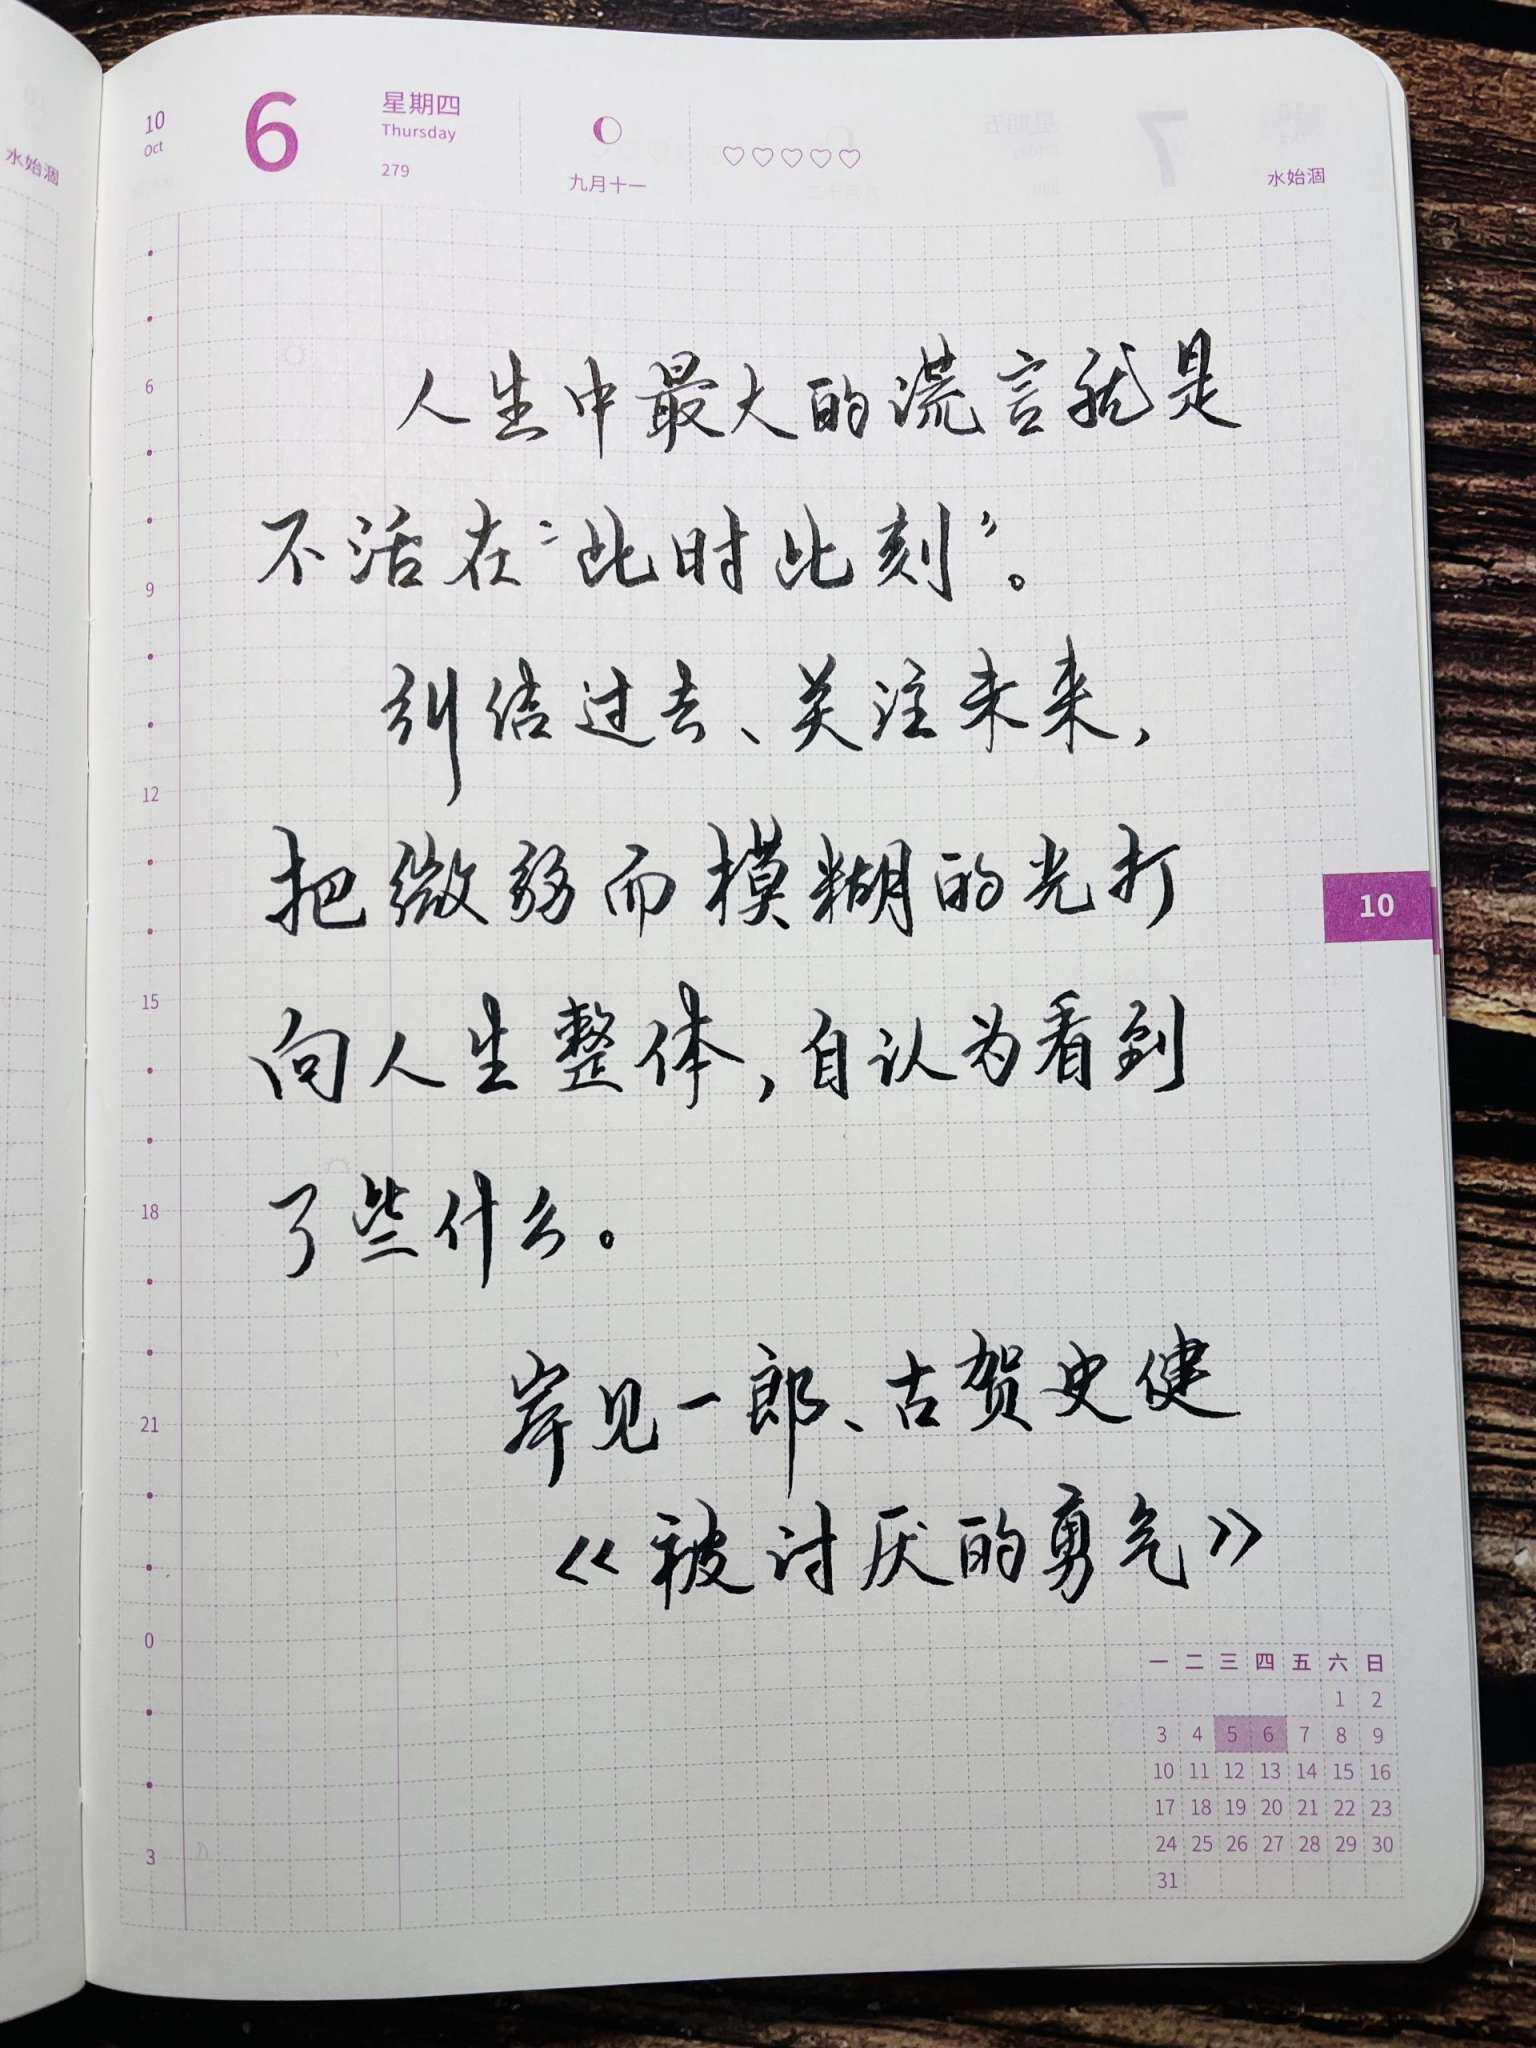 水始涸
10
Oct
6
星期四
Thursday
279
九月十一
水始涸
6
9
12
15
18
21
0
3
人生中最大的谎言就是
不活在“此时此刻”。
纠结过去、关注未来，
把微弱而模糊的光打
向人生整体，自认为看到
了些什么。
岸见一郎、古贺史健
《被讨厌的勇气》
10
一 二 三 四 五 六 日
1 2
3 4 5 6 7 8 9
10 11 12 13 14 15 16
17 18 19 20 21 22 23
24 25 26 27 28 29 30
31